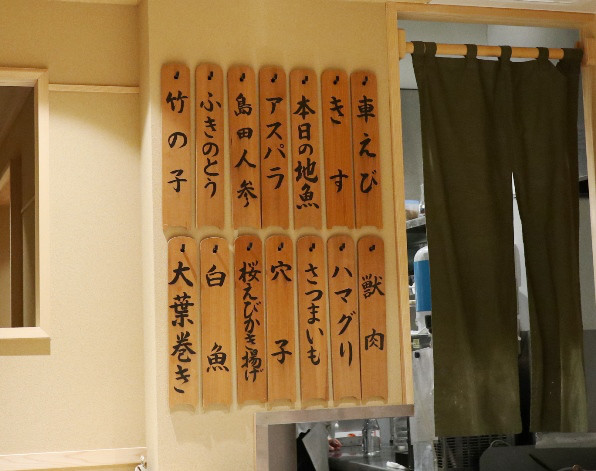 車えび
きす
本日の地魚
アスパラ
島田人参
ふきのとう
竹の子
獣肉
ハマグリ
さつまいも
穴子
桜えびかき揚げ
白魚
大葉巻き